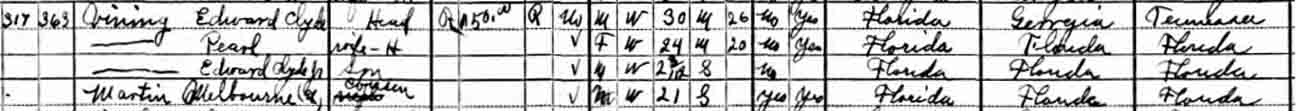 317 363 Vining Edward Clyde Head R 150.00 R No M W 30 M 26 No Yes Florida Georgia Tennessee
—— Pearl wife-H V F W 24 M 20 No Yes Florida Florida Florida
—— Edward Clyde Jr Son V M W S No Florida Florida Florida
Martin Melbourne Cousin V M W 21 S Yes Yes Florida Florida Florida